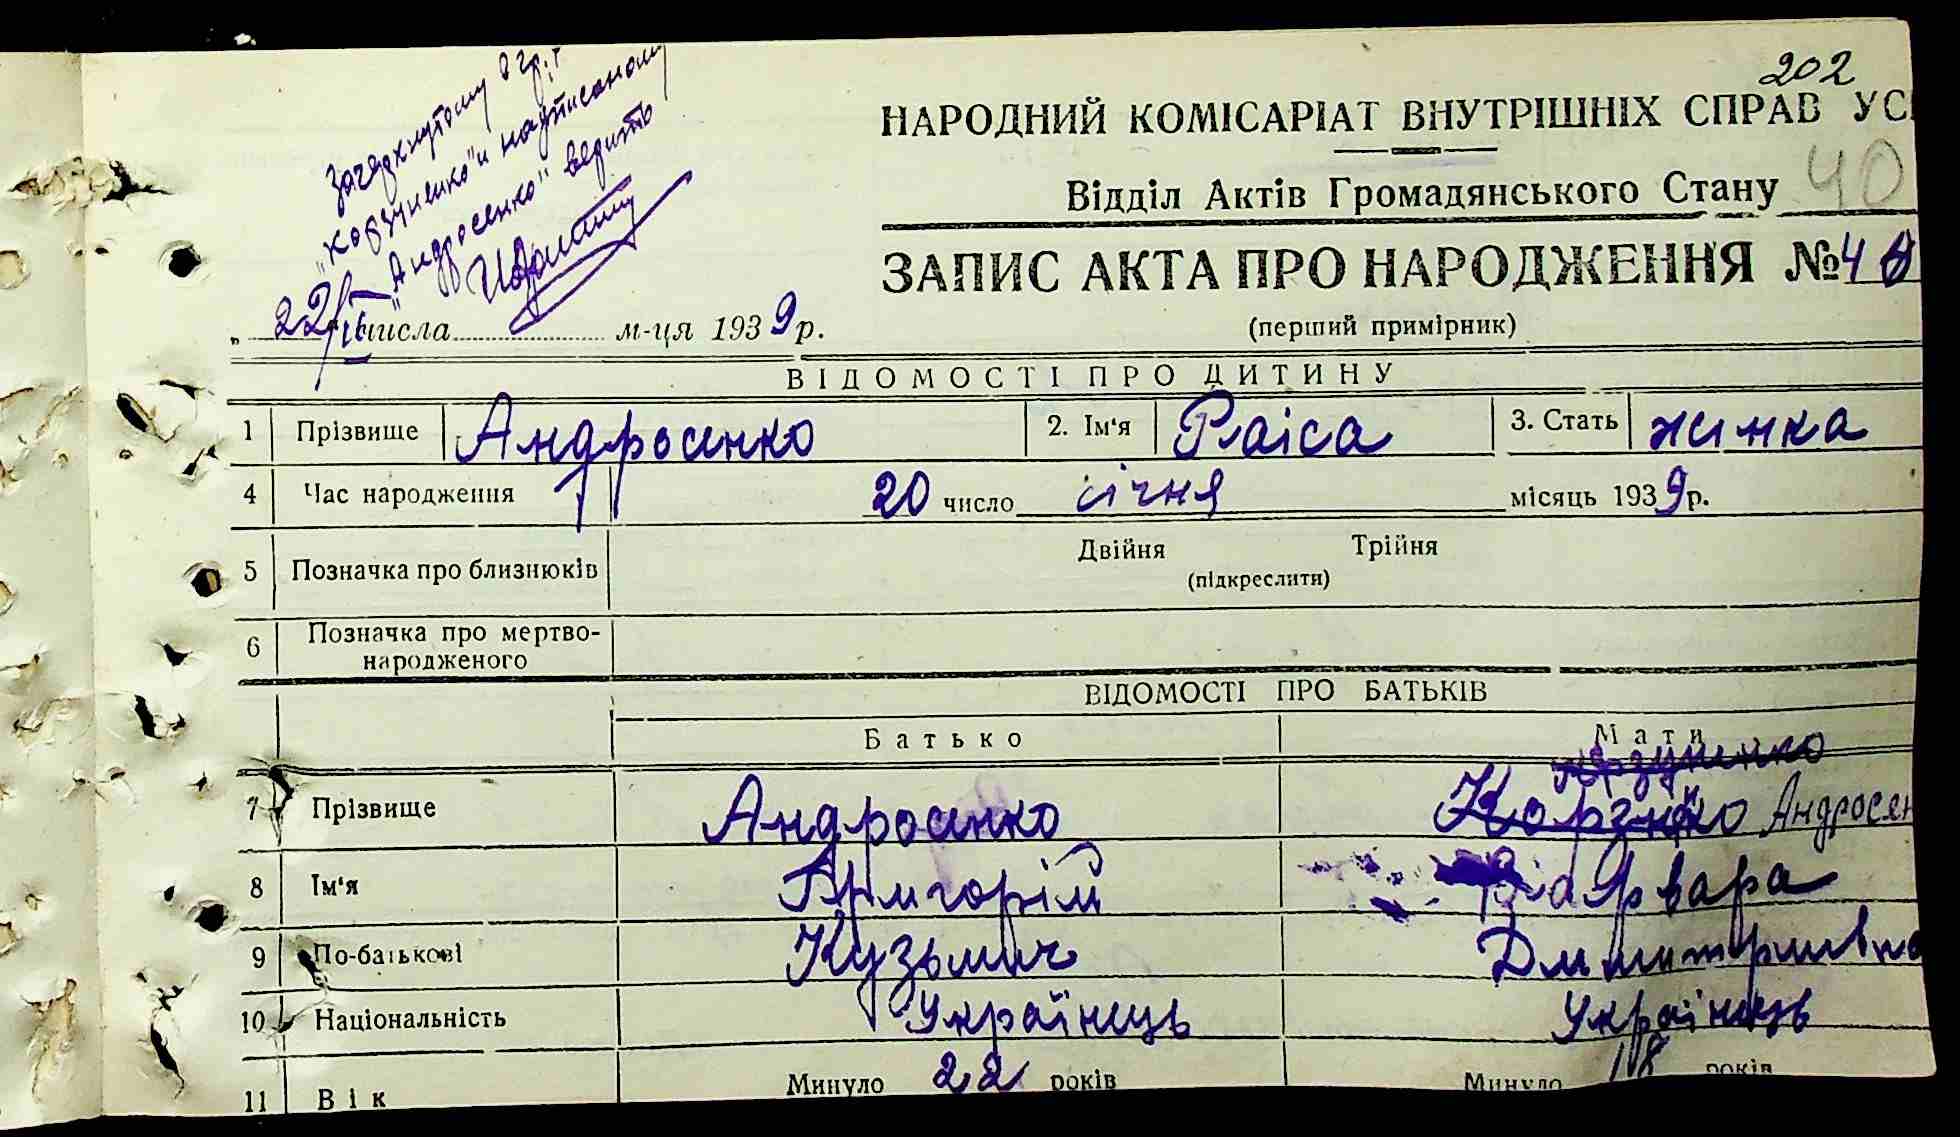 202
НАРОДНИЙ КОМІСАРІАТ ВНУТРІШНІХ СПРАВ УС
Відділ Актів Громадянського Стану
40
ЗАПИС АКТА ПРО НАРОДЖЕННЯ №40
(перший примірник)
и надписаному
"Андросенко" верить
„22/І числа м-ця 1939 р.
ВІДОМОСТІ ПРО ДИТИНУ
1 Прізвище Андросенко 2. Ім'я Раіса 3. Стать жинка
4 Час народження 20 число січня місяць 1939 р.
5 Позначка про близнюків Двійня Трійня
(підкреслити)
6 Позначка про мертво-
народженого
ВІДОМОСТІ ПРО БАТЬКІВ
Батько Мати
Корзуненко
7 Прізвище Андросенко Андросен
8 Ім'я Григорій Варвара
9 По-батькові Кузьмич Дмитривна
10 Національність Українець Українець
11 Вік Минуло 22 років Минуло 18 років